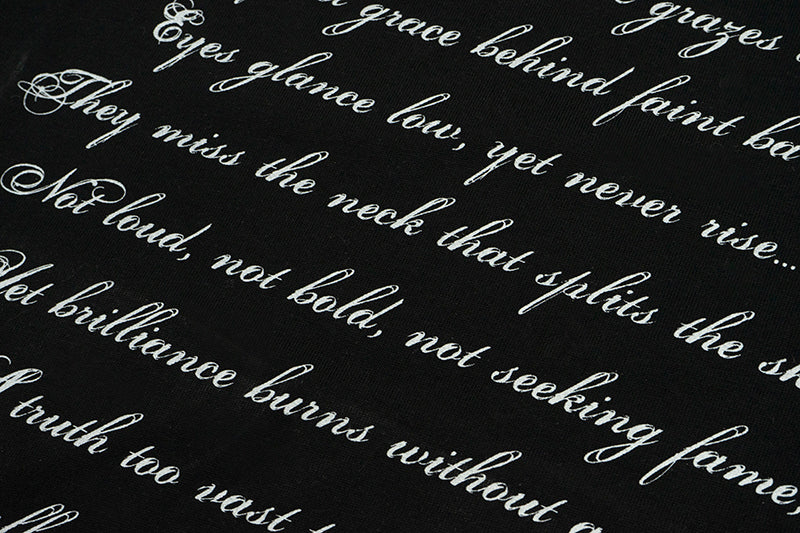 grazes
grace behind faint
Eyes glance low, yet never rise...
They miss the neck that splits the
Not loud, not bold, not seeking fame,
Yet brilliance burns without
A truth too vast